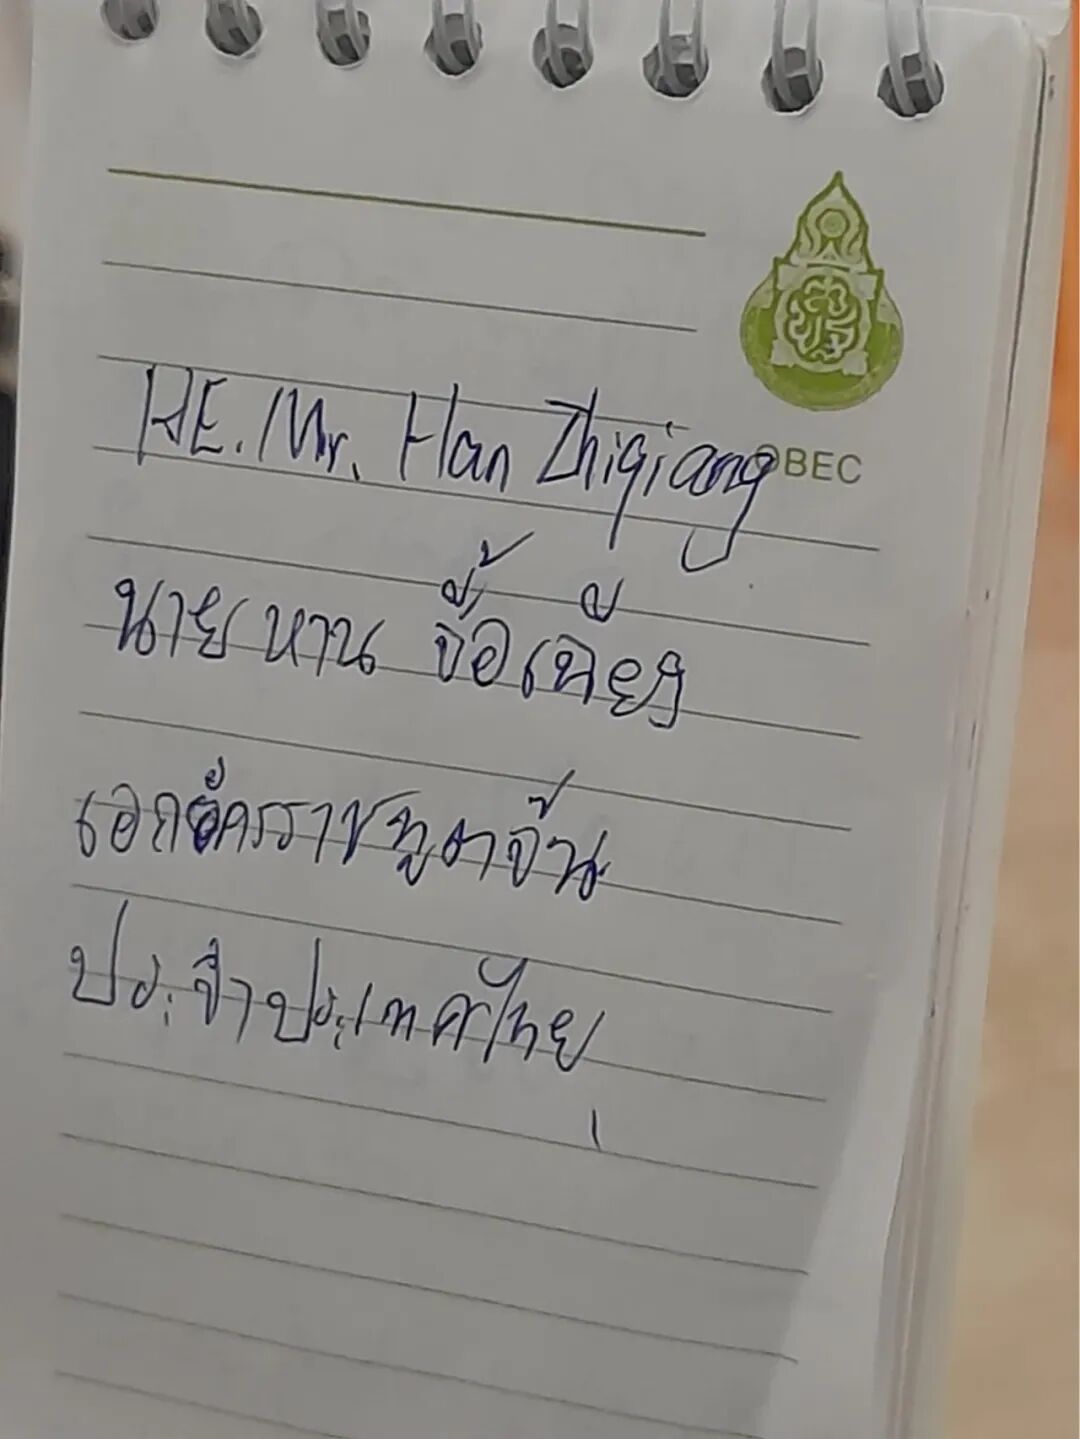 OBEC
HE. Mr. Han Zhiqiang
นาย หาน จื้อเฉียง
เอกอัครราชทูตจีน
ประจำประเทศไทย